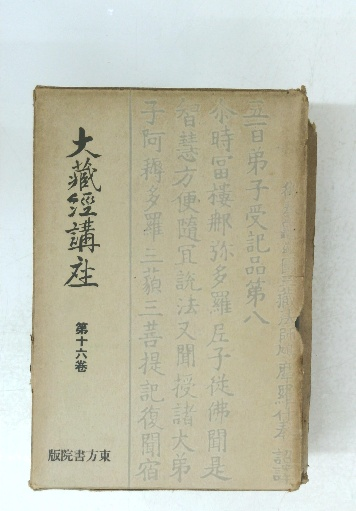 五百弟子受記品第八
尓時富樓那弥多羅尼子従佛聞是
智慧方便随冝説法又聞授諸大弟
子阿耨多羅三藐三菩提記復聞宿
大藏經講座
第十六卷
東方書院版